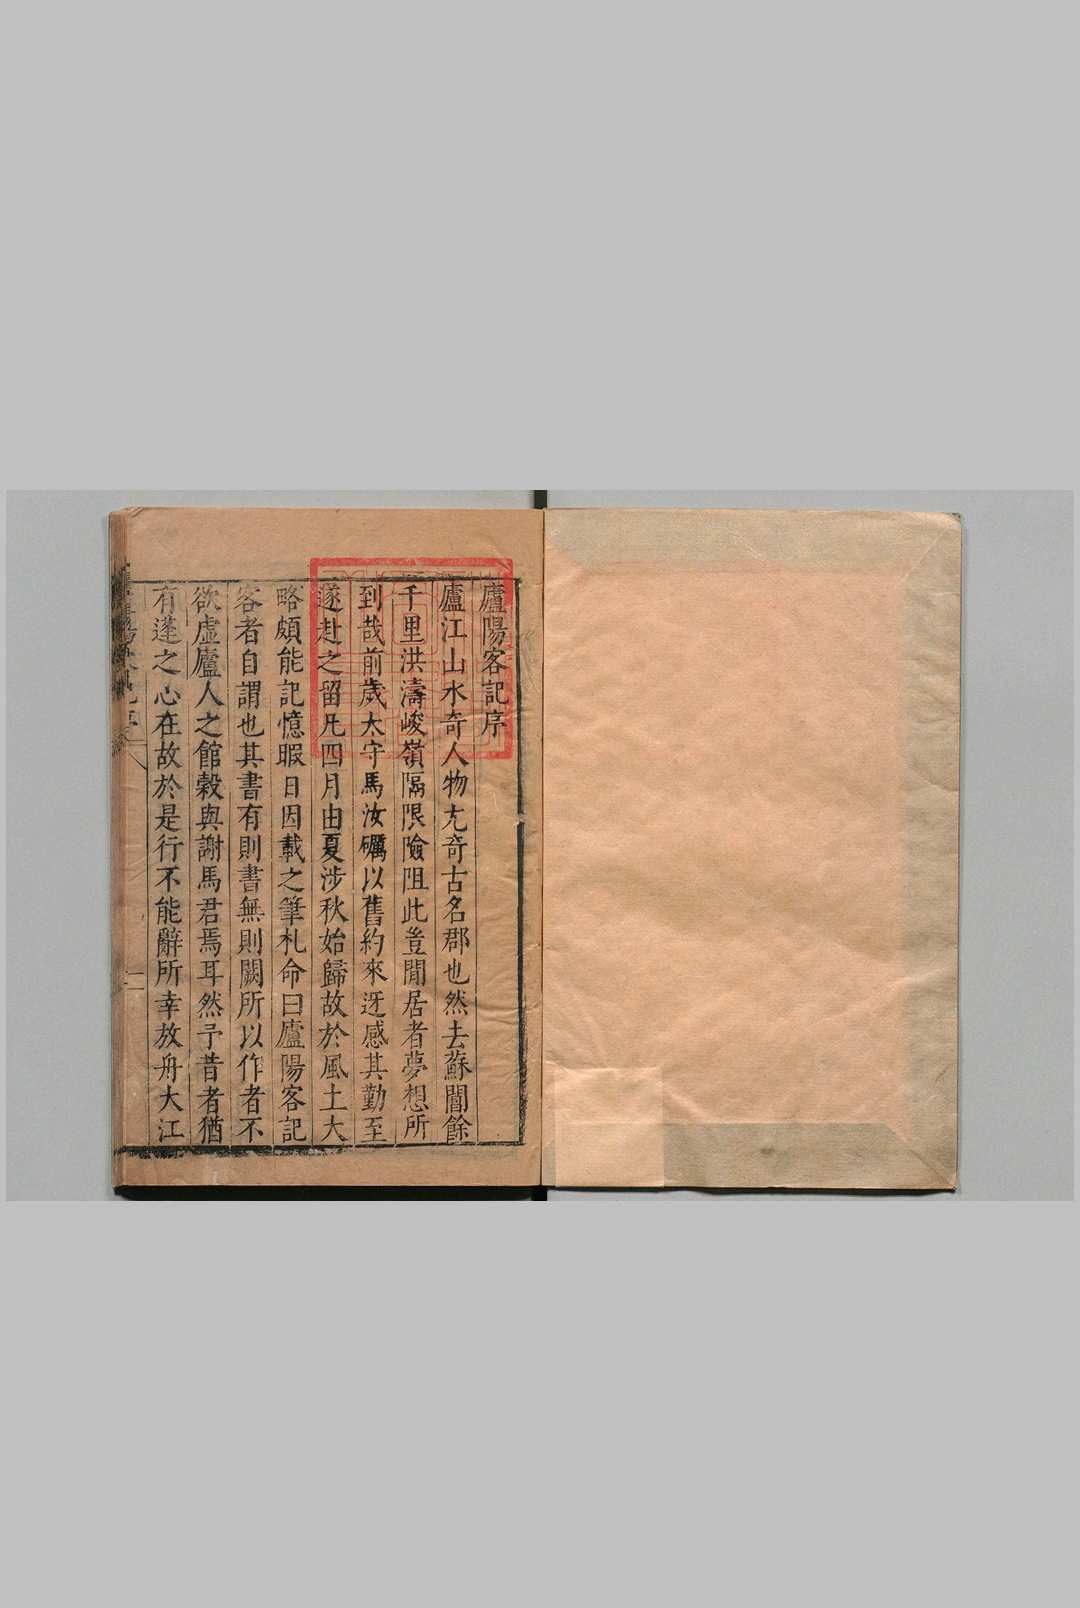 廬陽客記序
廬江山水奇人物尤奇古名郡也然去蘇閶餘
千里洪濤峻嶺隔限險阻此豈閒居者夢想所
到哉前歲大守馬汝礪以舊約來迓感其勤至
遂赴之留凡四月由夏涉秋始歸故於風土大
略頗能記憶暇日因載之筆札命曰廬陽客記
客者自謂也其書有則書無則闕所以作者不
欲虛廬人之館穀與謝馬君焉耳然予昔者猶
有蓬之心在故於是行不能辭所幸放舟大江